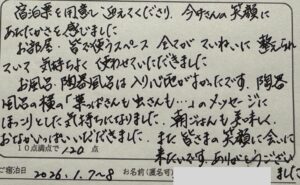 宿泊票を用意し迎えてくださり、今井さんの笑顔に
あたたかさを感じました
お部屋・皆で使うスペース 全てが ていねいに 整えられ
ていて 気持ちよく 使わせていただきました
お風呂、陶器風呂は入り心地がよかったです。陶器
風呂の横の「葉っぱさんも虫さんも…」のメッセージに
ほっこりとした気持ちになりました。朝ごはんも美味しく
おなかいっぱいいただきました
また 皆さまの笑顔に会いに
来たいです。ありがとうござい
ました
10点満点で120点
ご宿泊日 2026.1.7~8 お名前(匿名可)